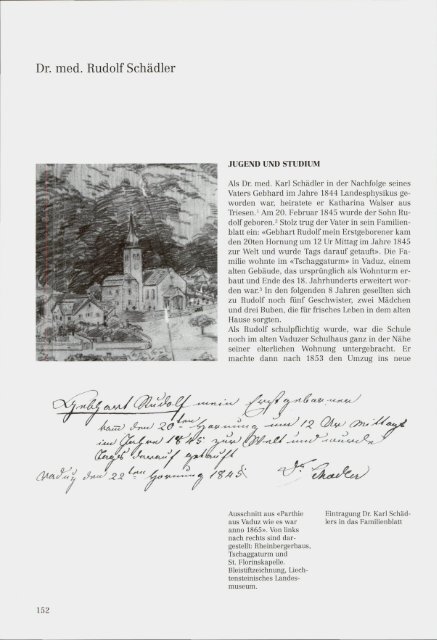 Dr. med. Rudolf Schädler
JUGEND UND STUDIUM
Als Dr. med. Karl Schädler in der Nachfolge seines
Vaters Gebhard im Jahre 1844 Landesphysikus ge-
worden war, heiratete er Katharina Walser aus
Triesen.¹ Am 20. Februar 1845 wurde der Sohn Ru-
dolf geboren.² Stolz trug der Vater in sein Familien-
blatt ein: «Gebhart Rudolf mein Erstgeborener kam
den 20ten Hornung um 12 Ur Mittag im Jahre 1845
zur Welt und wurde Tags darauf getauft». Die Fa-
milie wohnte im «Tschaggaturm» in Vaduz, einem
alten Gebäude, das ursprünglich als Wohnturm er-
baut und Ende des 18. Jahrhunderts erweitert wor-
den war.³ In den folgenden 8 Jahren gesellten sich
zu Rudolf noch fünf Geschwister, zwei Mädchen
und drei Buben, die für frisches Leben in dem alten
Hause sorgten.
Als Rudolf schulpflichtig wurde, war die Schule
noch im alten Vaduzer Schulhaus ganz in der Nähe
seiner elterlichen Wohnung untergebracht. Er
machte dann nach 1853 den Umzug ins neue
Gebhart Rudolf mein Erstgeborener
kam den 20ten Hornung um 12 Ur Mittags
im Jahre 1845 zur Welt und wurde
Tags darauf getauft
Vaduz den 22ten Hornung 1845 Dr Schädler
Ausschnitt aus «Parthie
aus Vaduz wie es war
anno 1865». Von links
nach rechts sind dar-
gestellt: Rheinbergerhaus,
Tschaggaturm und
St. Florinskapelle.
Bleistiftzeichnung, Liech-
tensteinisches Landes-
museum.
Eintragung Dr. Karl Schäd-
lers in das Familienblatt
152